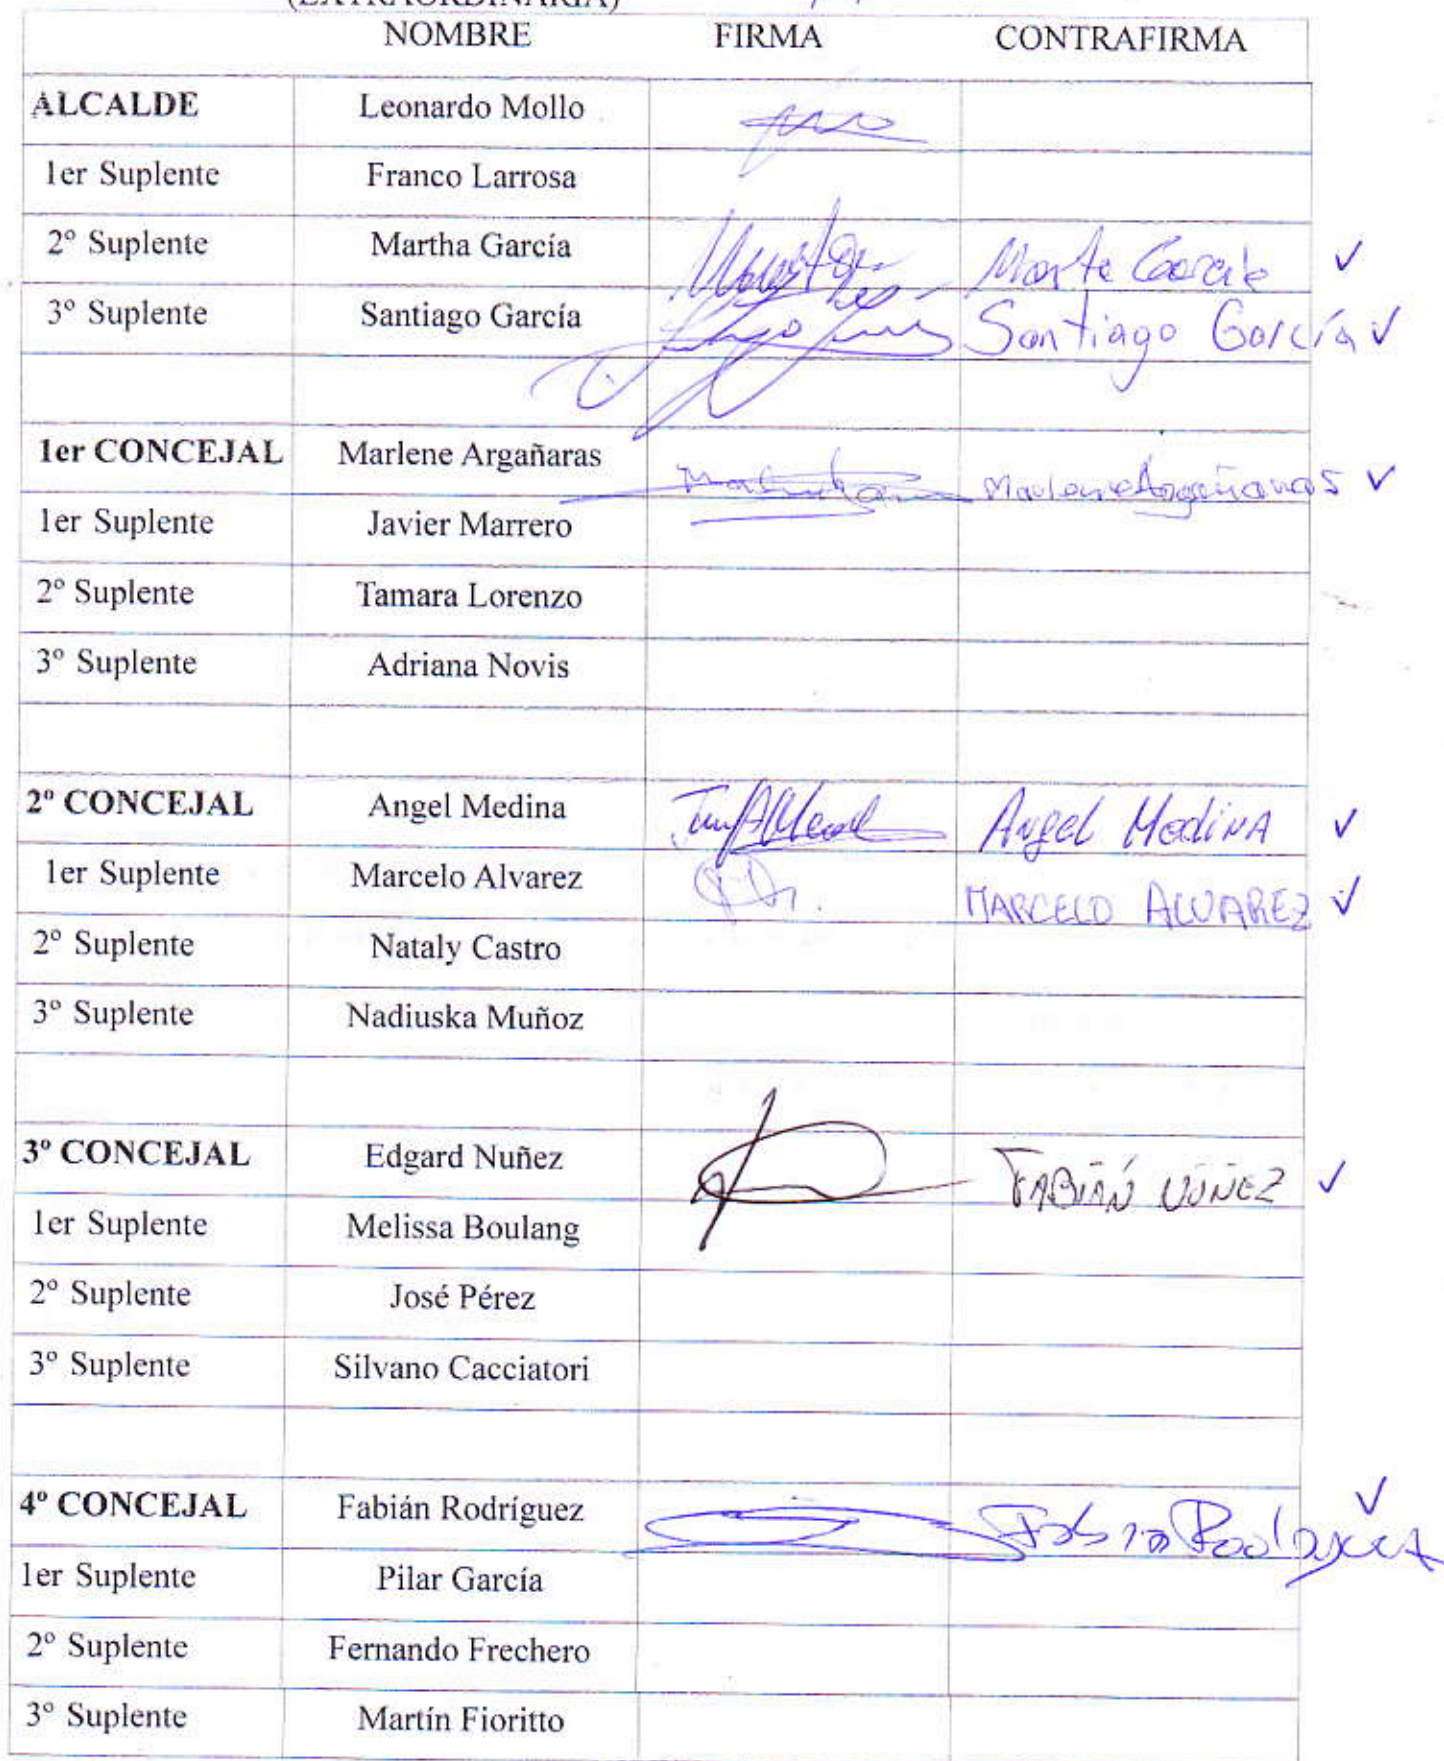 (EXTRAORDINARIA)
NOMBRE FIRMA CONTRAFIRMA
ALCALDE Leonardo Mollo
1er Suplente Franco Larrosa
2º Suplente Martha García
3º Suplente Santiago García Santiago García ✓
1er CONCEJAL Marlene Argañaras Marlene Argañaras ✓
1er Suplente Javier Marrero
2º Suplente Tamara Lorenzo
3º Suplente Adriana Novis
2º CONCEJAL Angel Medina Angel Medina ✓
1er Suplente Marcelo Alvarez MARCELO ALVAREZ ✓
2º Suplente Nataly Castro
3º Suplente Nadiuska Muñoz
3º CONCEJAL Edgard Nuñez FABIÁN NÚÑEZ ✓
1er Suplente Melissa Boulang
2º Suplente José Pérez
3º Suplente Silvano Cacciatori
4º CONCEJAL Fabián Rodríguez ✓
1er Suplente Pilar García
2º Suplente Fernando Frechero
3º Suplente Martín Fioritto